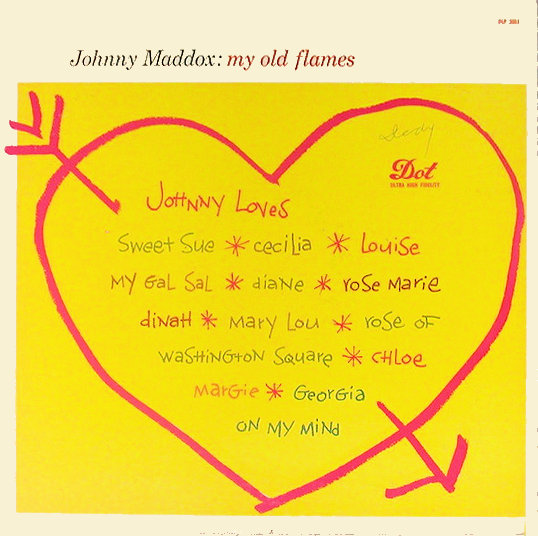 Johnny Maddox: my old flames
Dot
ULTRA HIGH FIDELITY
JOHNNY LOVES
Sweet Sue * cecilia * Louise
MY Gal Sal * diane * rose Marie
dinah * Mary Lou * rose OF
WASHINGTON Square * CHLOE
Margie * Georgia
ON MY MINd